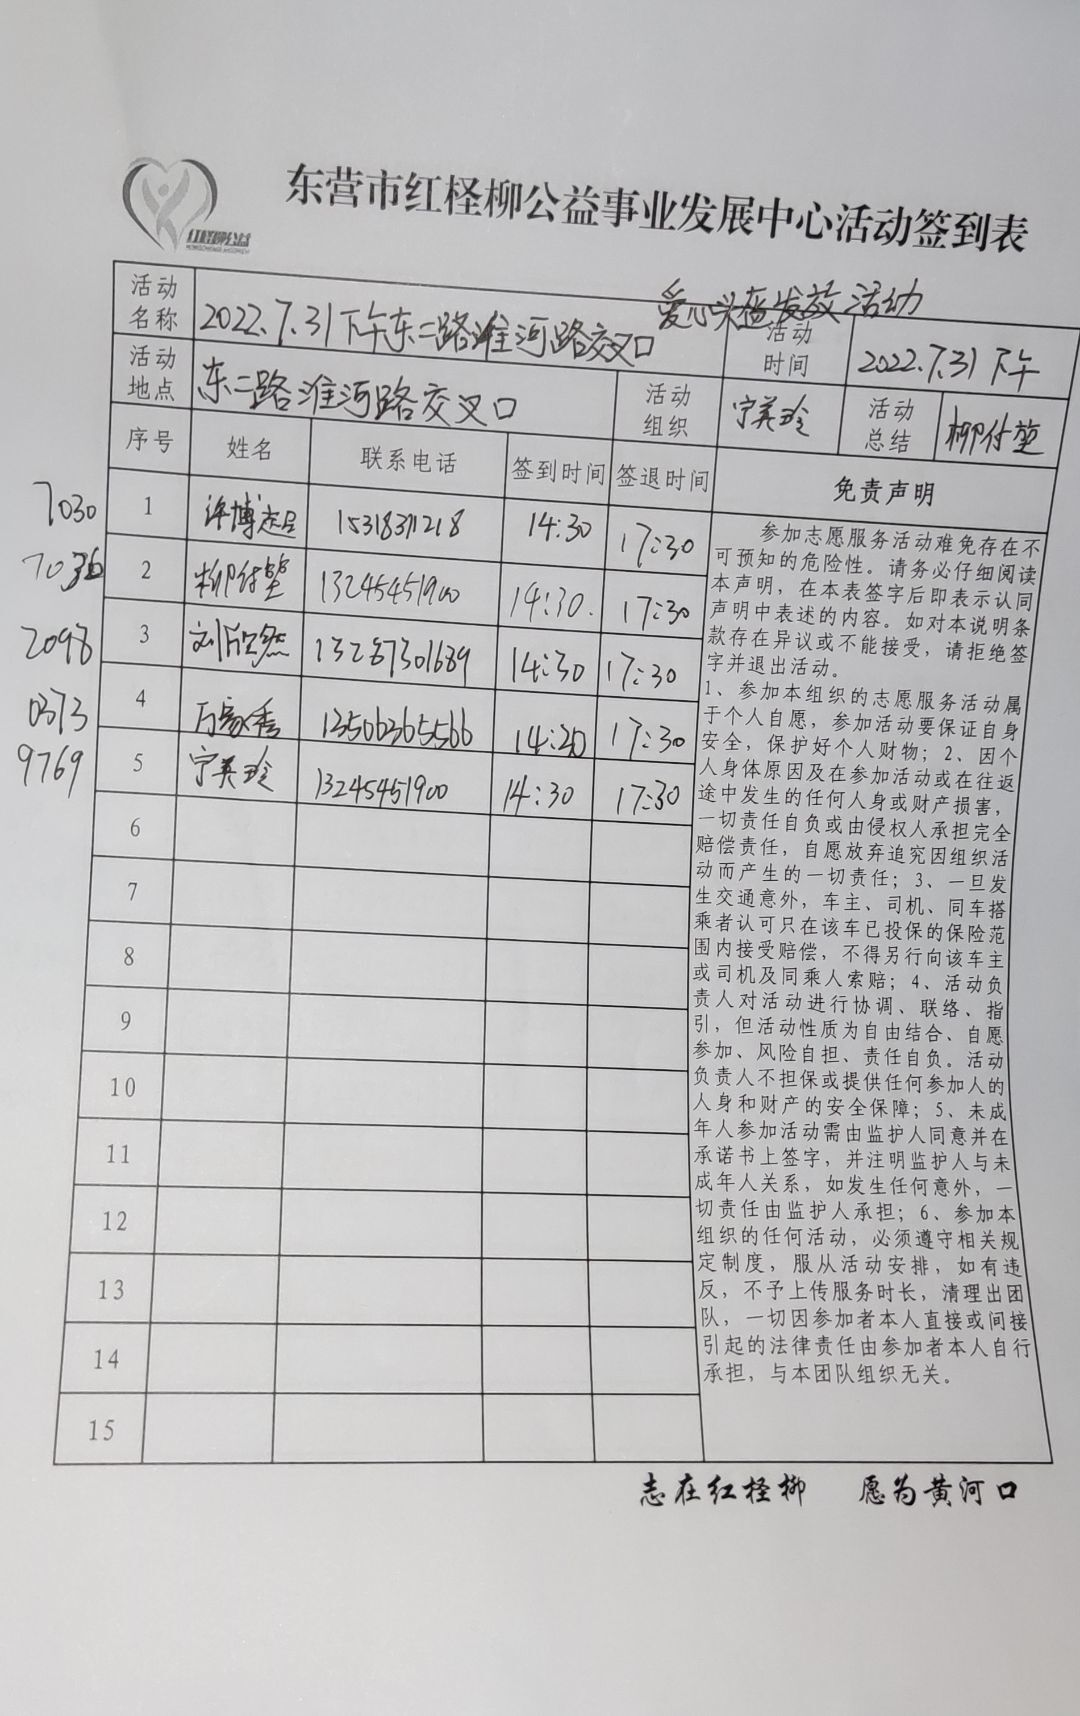 东营市红柽柳公益事业发展中心活动签到表
红柽柳公益
活动名称 2022.7.31下午东二路淮河路交叉口 爱心头盔发放活动 活动时间 2022.7.31 下午
活动地点 东二路淮河路交叉口 活动组织 宁英玲 活动总结 柳付堃
序号 姓名 联系电话 签到时间 签退时间 免责声明
7030 1 许博 15318371218 14:30 17:30
7036 2 柳付堃 13245451900 14:30. 17:30
2098 3 刘欣然 13287301689 14:30 17:30
0373 4 万家秀 13506365566 14:30 17:30
9769 5 宁英玲 13245451900 14:30 17:30
6
7
8
9
10
11
12
13
14
15
参加志愿服务活动难免存在不
可预知的危险性。请务必仔细阅读
本声明，在本表签字后即表示认同
声明中表述的内容。如对本说明条
款存在异议或不能接受，请拒绝签
字并退出活动。
1、参加本组织的志愿服务活动属
于个人自愿，参加活动要保证自身
安全，保护好个人财物；2、因个
人身体原因及在参加活动或在往返
途中发生的任何人身或财产损害，
一切责任自负或由侵权人承担完全
赔偿责任，自愿放弃追究因组织活
动而产生的一切责任；3、一旦发
生交通意外，车主、司机、同车搭
乘者认可只在该车已投保的保险范
围内接受赔偿，不得另行向该车主
或司机及同乘人索赔；4、活动负
责人对活动进行协调、联络、指
引，但活动性质为自由结合、自愿
参加、风险自担、责任自负。活动
负责人不担保或提供任何参加人的
人身和财产的安全保障；5、未成
年人参加活动需由监护人同意并在
承诺书上签字，并注明监护人与未
成年人关系，如发生任何意外，一
切责任由监护人承担；6、参加本
组织的任何活动，必须遵守相关规
定制度，服从活动安排，如有违
反，不予上传服务时长，清理出团
队，一切因参加者本人直接或间接
引起的法律责任由参加者本人自行
承担，与本团队组织无关。
志在红柽柳 愿为黄河口